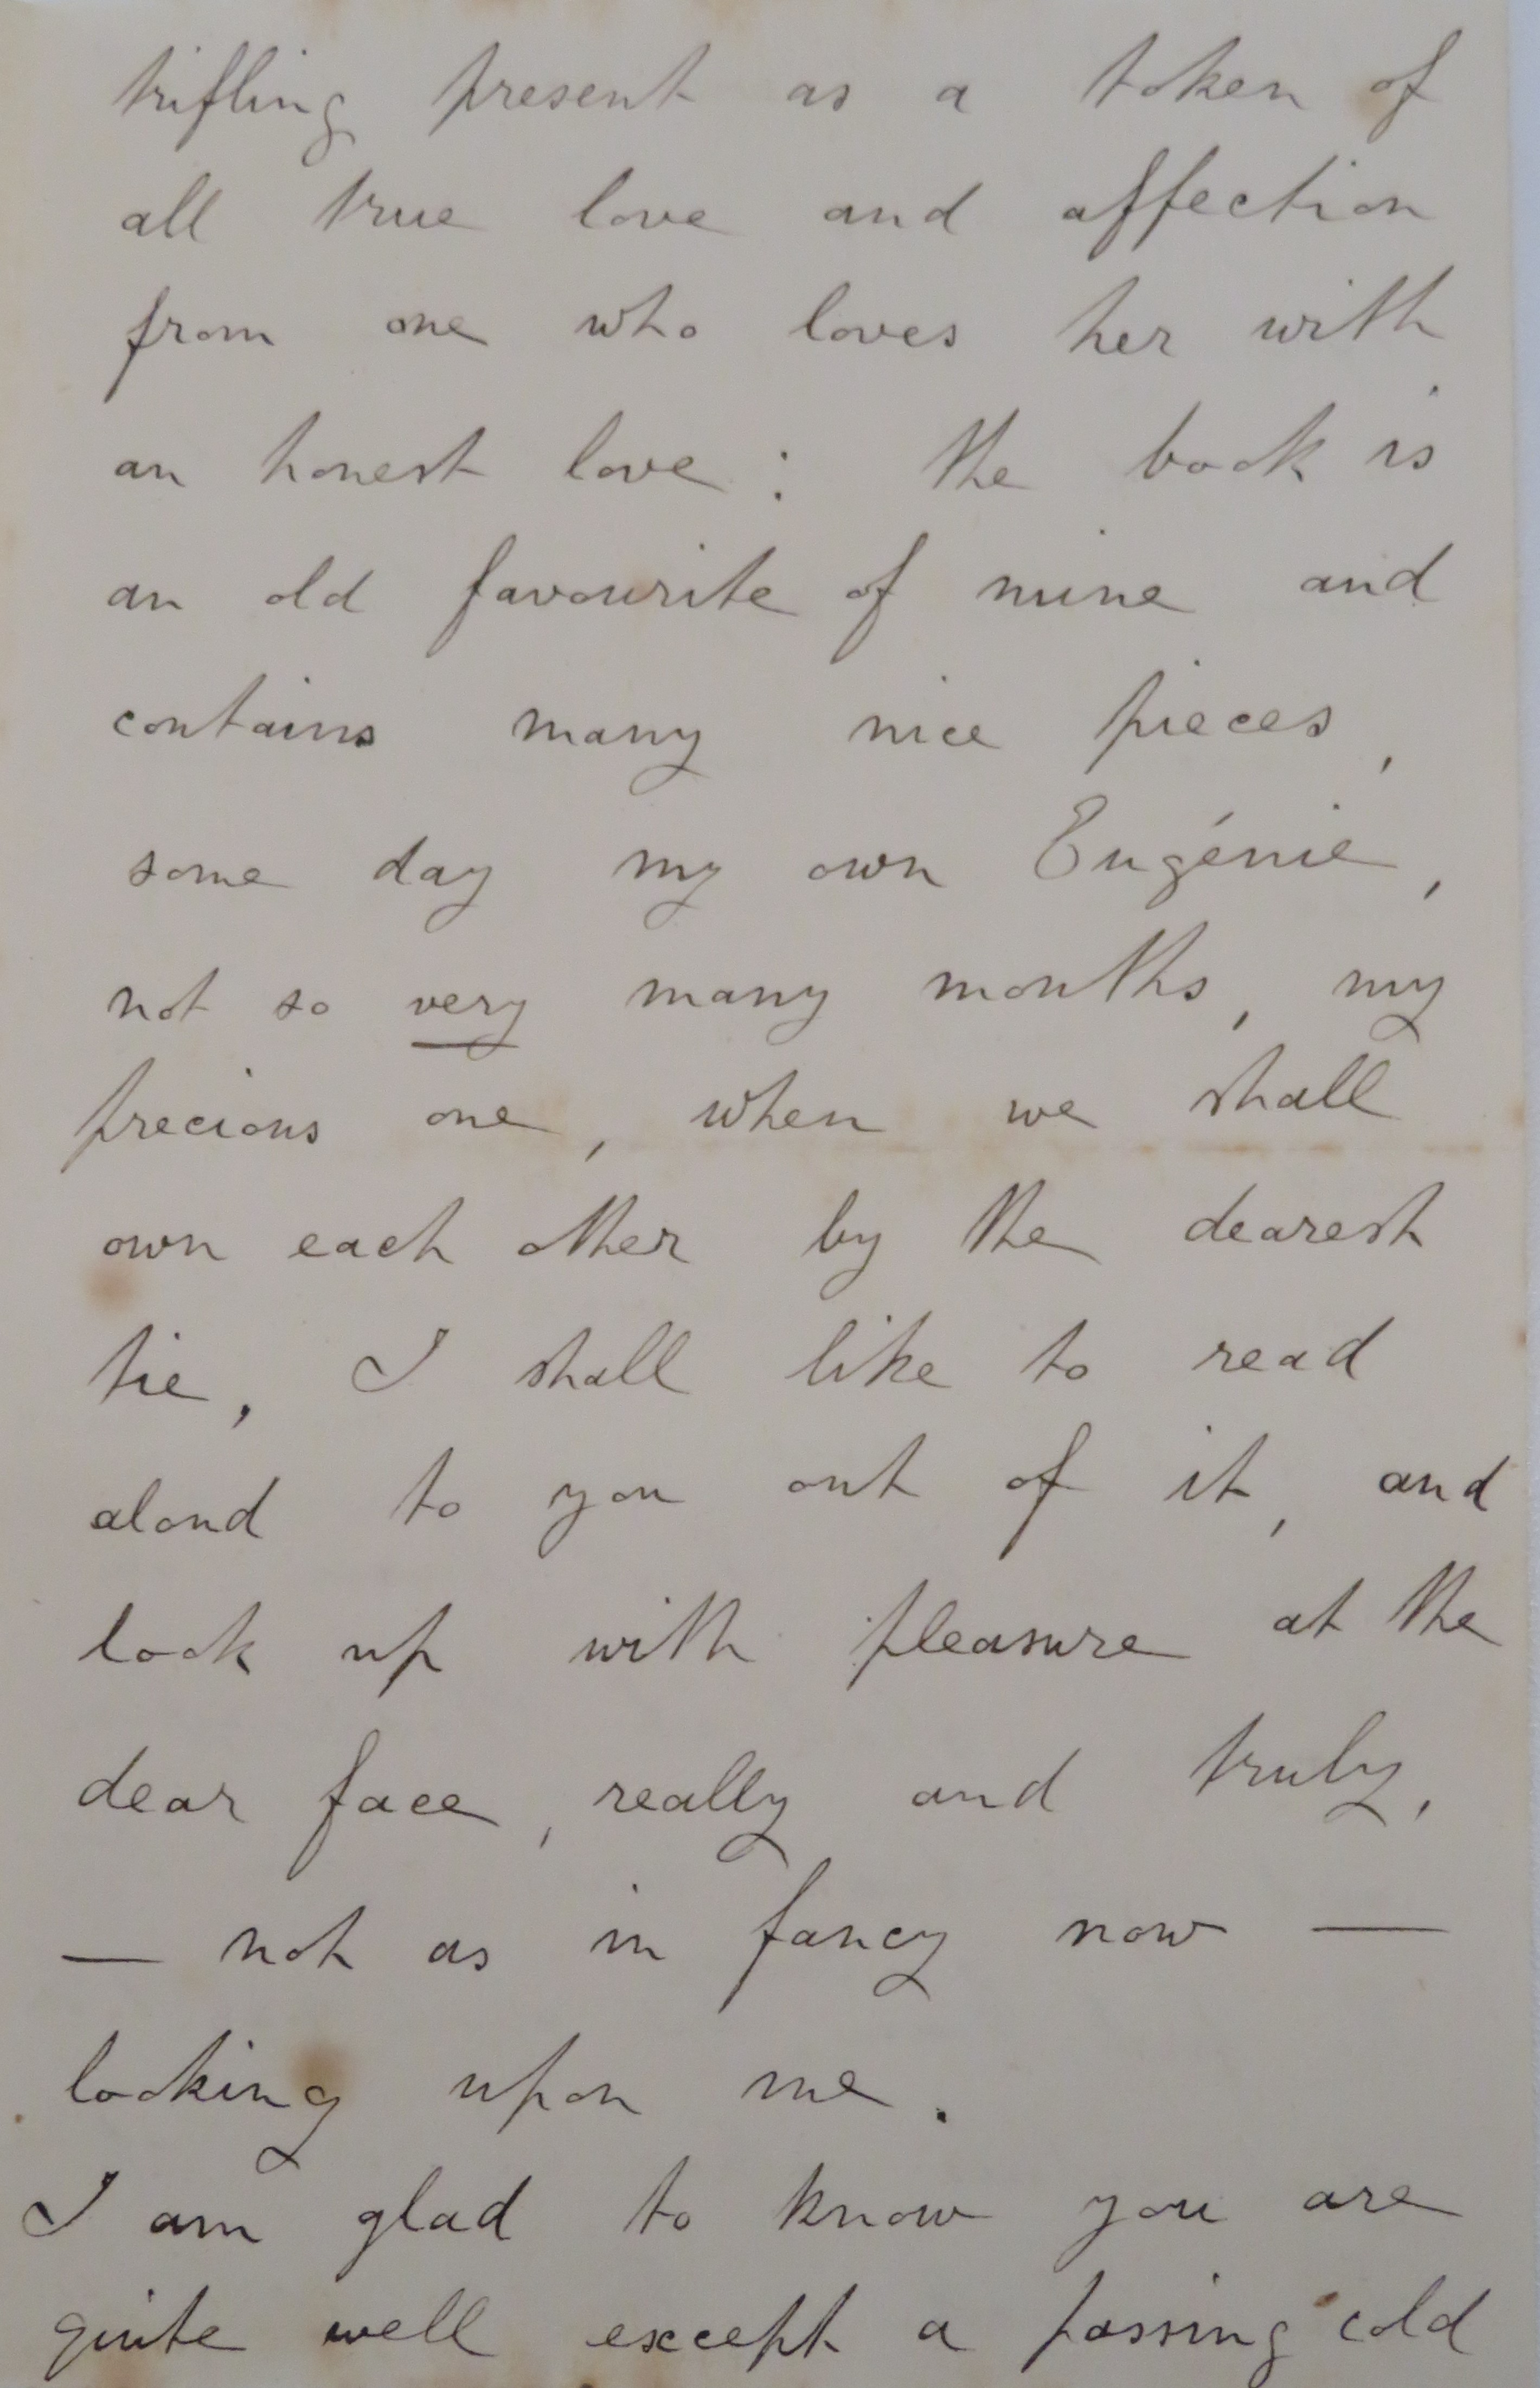 trifling present as a token of
all true love and affection
from one who loves her with
an honest love : the book is
an old favourite of mine and
contains many nice pieces,
some day my own Eugénie,
not so very many months, my
precious one, when we shall
own each other by the dearest
tie, I shall like to read
aloud to you out of it, and
look up with pleasure at the
dear face, really and truly,
— not as in fancy now —
looking upon me.
I am glad to know you are
quite well except a passing cold